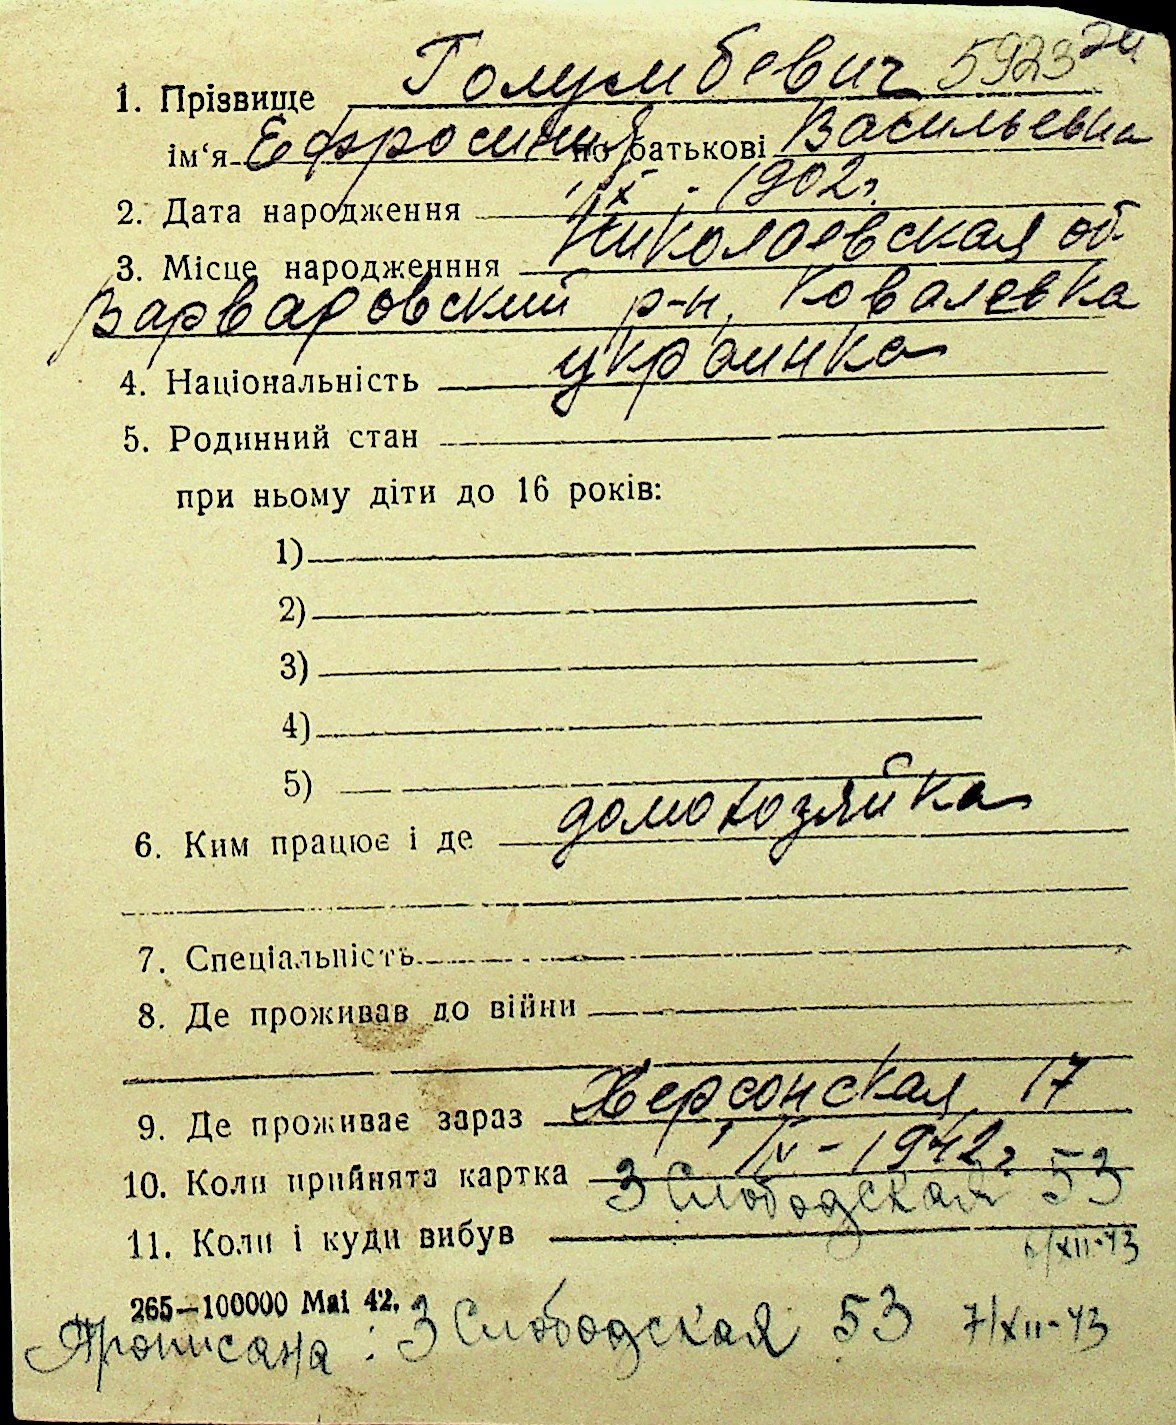 1. Прізвище Голумбевич 5923
ім‘я Ефросиния по батькові Васильевна
2. Дата народження /IX - 1902г.
3. Місце народженння Николаевская об.
Варваровский р-н, Ковалевка
4. Національність украинка
5. Родинний стан
при ньому діти до 16 років:
1)
2)
3)
4)
5)
6. Ким працює і де домохозяйка
7. Спеціальність
8. Де проживав до війни
9. Де проживає зараз Херсонская, 17
10. Коли прийнята картка /IV - 1942г
3 Слободская 53
11. Коли і куди вибув
/XII-43
265—100000 Mai 42.
Прописана: 3 Слободская 53 7/XII-43